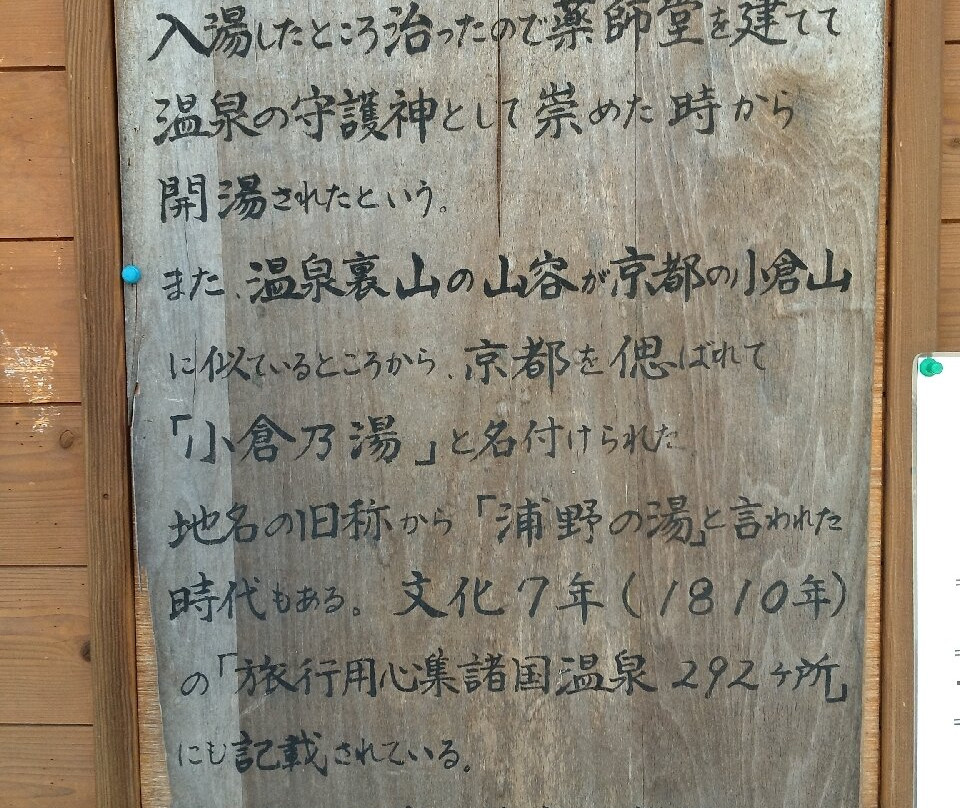 入湯したところ治ったので薬師堂を建てて
温泉の守護神として崇めた時から
開湯されたという。
また、温泉裏山の山容が京都の小倉山
に似ているところから、京都を偲ばれて
「小倉乃湯」と名付けられた
地名の旧称から「浦野の湯」と言われた
時代もある。文化7年(1810年)
の「旅行用心集諸国温泉292ヶ所」
にも記載されている。